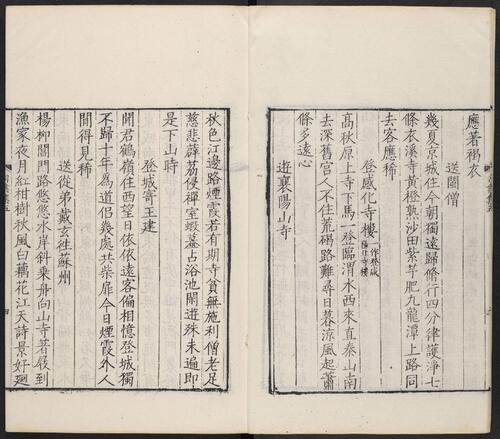 應著褐衣
送閩僧
幾夏京城住今朝獨遠歸修行四分律護淨七
條衣溪寺黃橙熟沙田紫芋肥九龍潭上路同
去客應稀
登感化寺樓一作登咸陽北寺樓
高秋原上寺下馬一登臨渭水西來直秦山南
去深舊宮人不住荒碣路難尋日暮涼風起蕭
條多遠心
遊襄陽山寺
秋色江邊路煙霞若有期寺貧無施利僧老足
慈悲薜荔侵禪室蝦蟇占浴池閒遊殊未遍即
是下山時
登城寄王建
聞君鶴嶺住西望日依依遠客偏相憶登城獨
不歸十年爲道侶幾處共柴扉今日煙霞外人
間得見稀
送從弟戴玄往蘇州
楊柳閶門路悠悠水岸斜乘舟向山寺著屐到
漁家夜月紅柑樹秋風白藕花江天詩景好迴